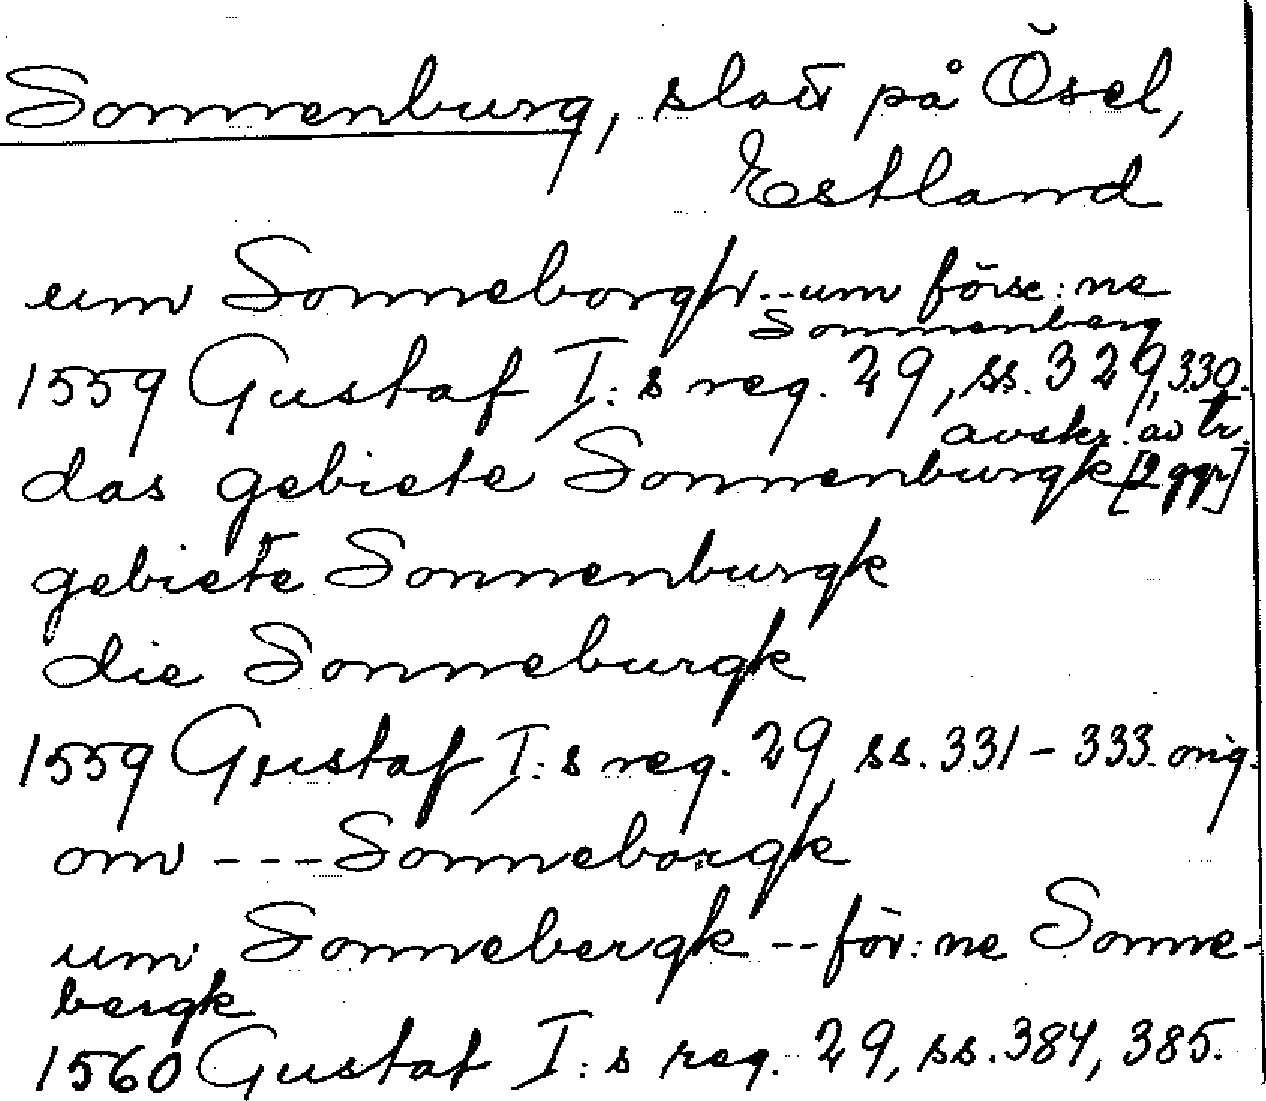 Sonnenburg, slott på Ösel,
Estland
um Sonneborgh --um förse:ne
Sonnenberg
1559 Gustaf I:s reg. 29, ss. 329, 330.
avskr. av tr.
das gebiete Sonnenburgk [2 ggr]
gebiete Sonnenburgk
die Sonneburgk
1559 Gustaf I:s reg. 29, ss. 331-333. orig.
om ---Sonneborgk
um Sonnebergk --för:ne Sonne-
bergk
1560 Gustaf I:s reg. 29, ss. 384, 385.